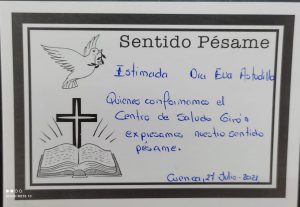 Sentido Pésame
Estimada Dra Eva Astudillo
Quienes conformamos el
Centro de Saludo Girón
expresamos nuestro sentido
pésame.
Cuenca, 27 Julio - 2021